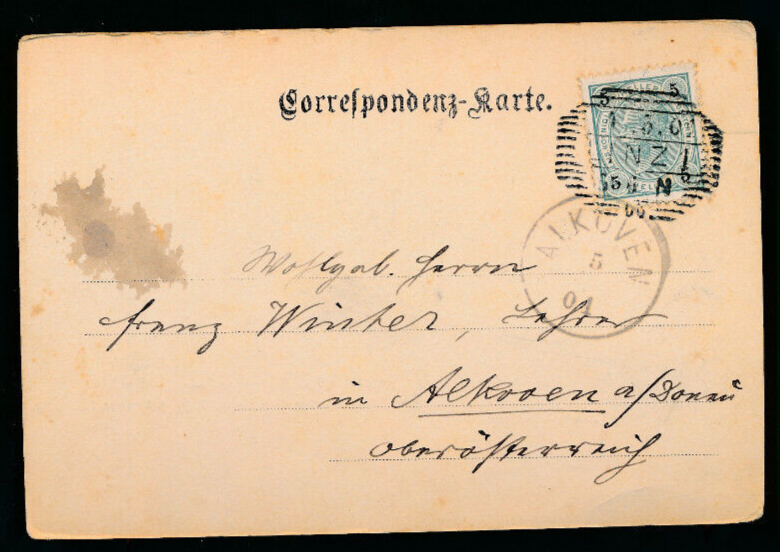 Correspondenz-Karte.
5 5
5 5
NZ 1
ALKOVEN
5
01
Wohlgeb. Herrn
Franz Winter, Lehrer
in Alkoven a/Donau
Oberösterreich